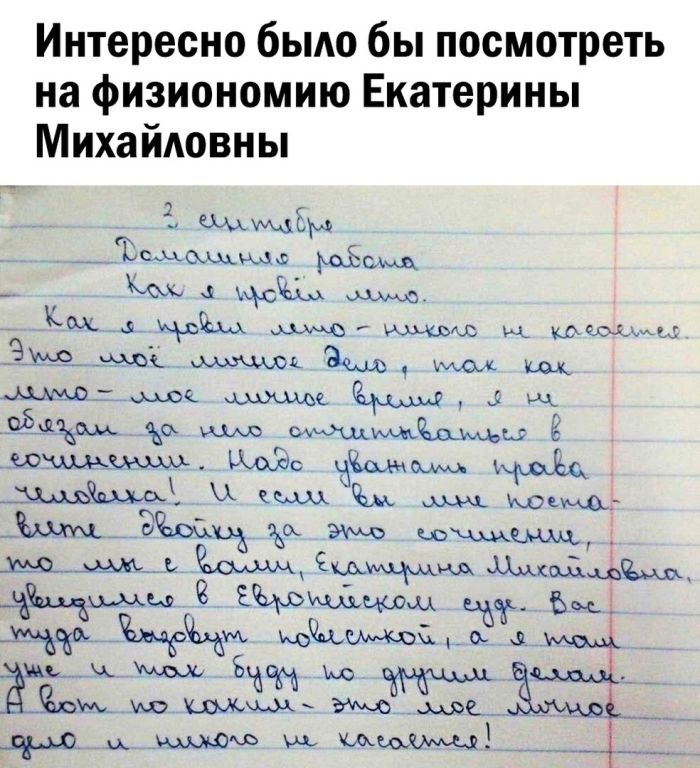 Интересно было бы посмотреть
на физиономию Екатерины
Михайловны
3 сентября
Домашняя работа
Как я провёл лето.
Как я провел лето - никого не касается.
Это моё личное дело, так как
лето - мое личное время, я не
обязан за него отчитываться в
сочинении. Надо уважать права
человека! И если Вы мне поста-
вите двойку за это сочинение,
то мы с вами, Екатерина Михайловна,
увидимся в Европейском суде. Вас
туда вызовут повесткой, а я там
уже и так буду по другим делам.
А вот по каким - это мое личное
дело и никого не касается!